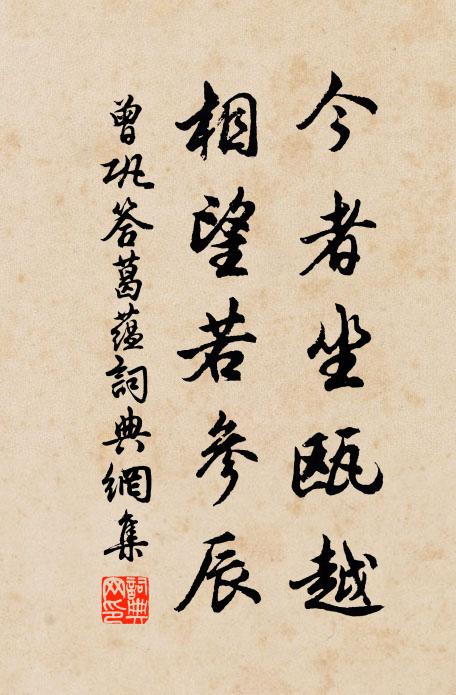 今者坐瓯越
相望若參辰
曾巩答葛蕴詞典網集
詞典网印